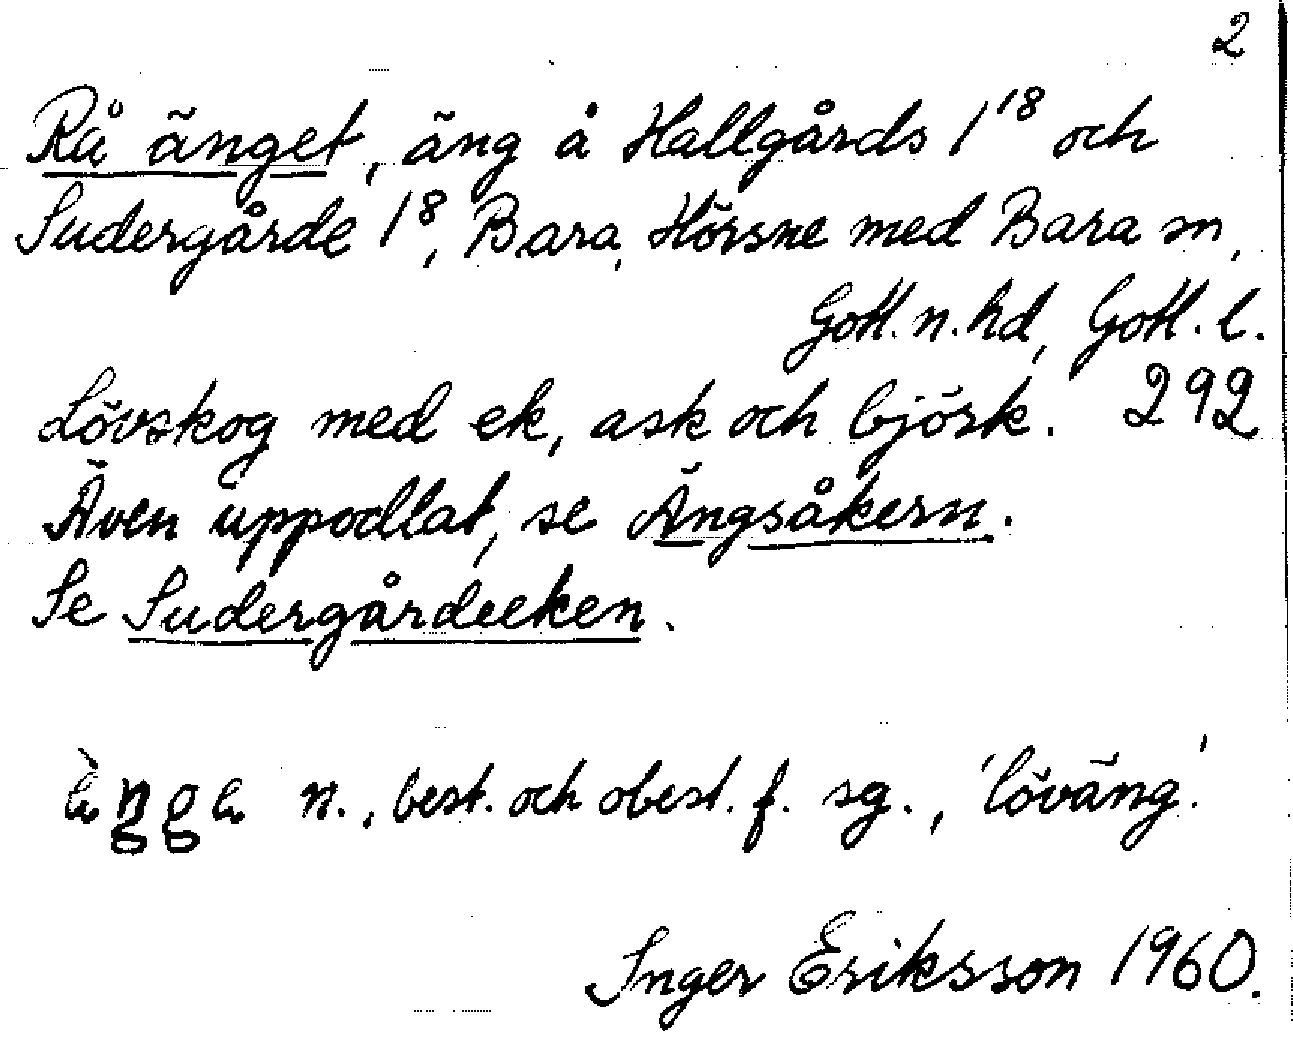 2
Rå änget, äng å Hallgårds 1¹⁸ och
Sudergårde 1⁸, Bara, Hörsne med Bara sn,
Gotl. n. hd, Gotl. l.
Lövskog med ek, ask och björk. 292
Även uppodlat, se Ängsåkern.
Se Sudergårdeeken.
n., best. och obest. f. sg., 'löväng'.
Inger Eriksson 1960.